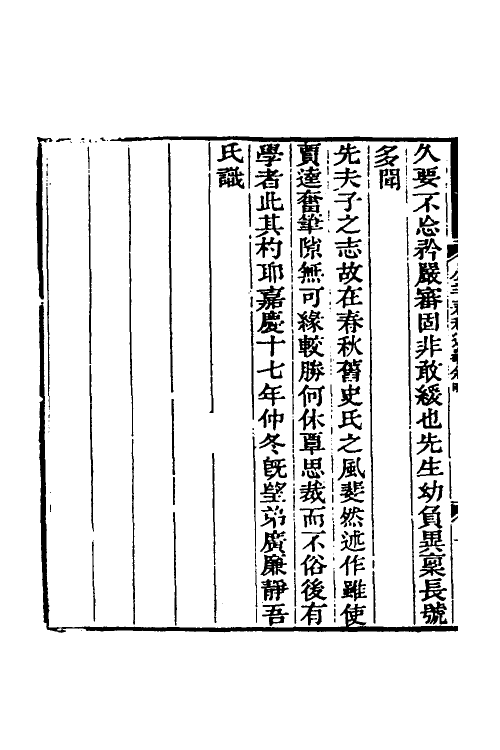 久要不忘矜嚴審固非敢緩也先生幼負異稟長號
多聞
先夫子之志故在春秋舊史氏之風斐然述作雖使
賈逵奮筆隙無可緣較勝何休覃思裁而不俗後有
學者此其杓耶嘉慶十七年仲冬旣望弟廣廉靜吾
氏識